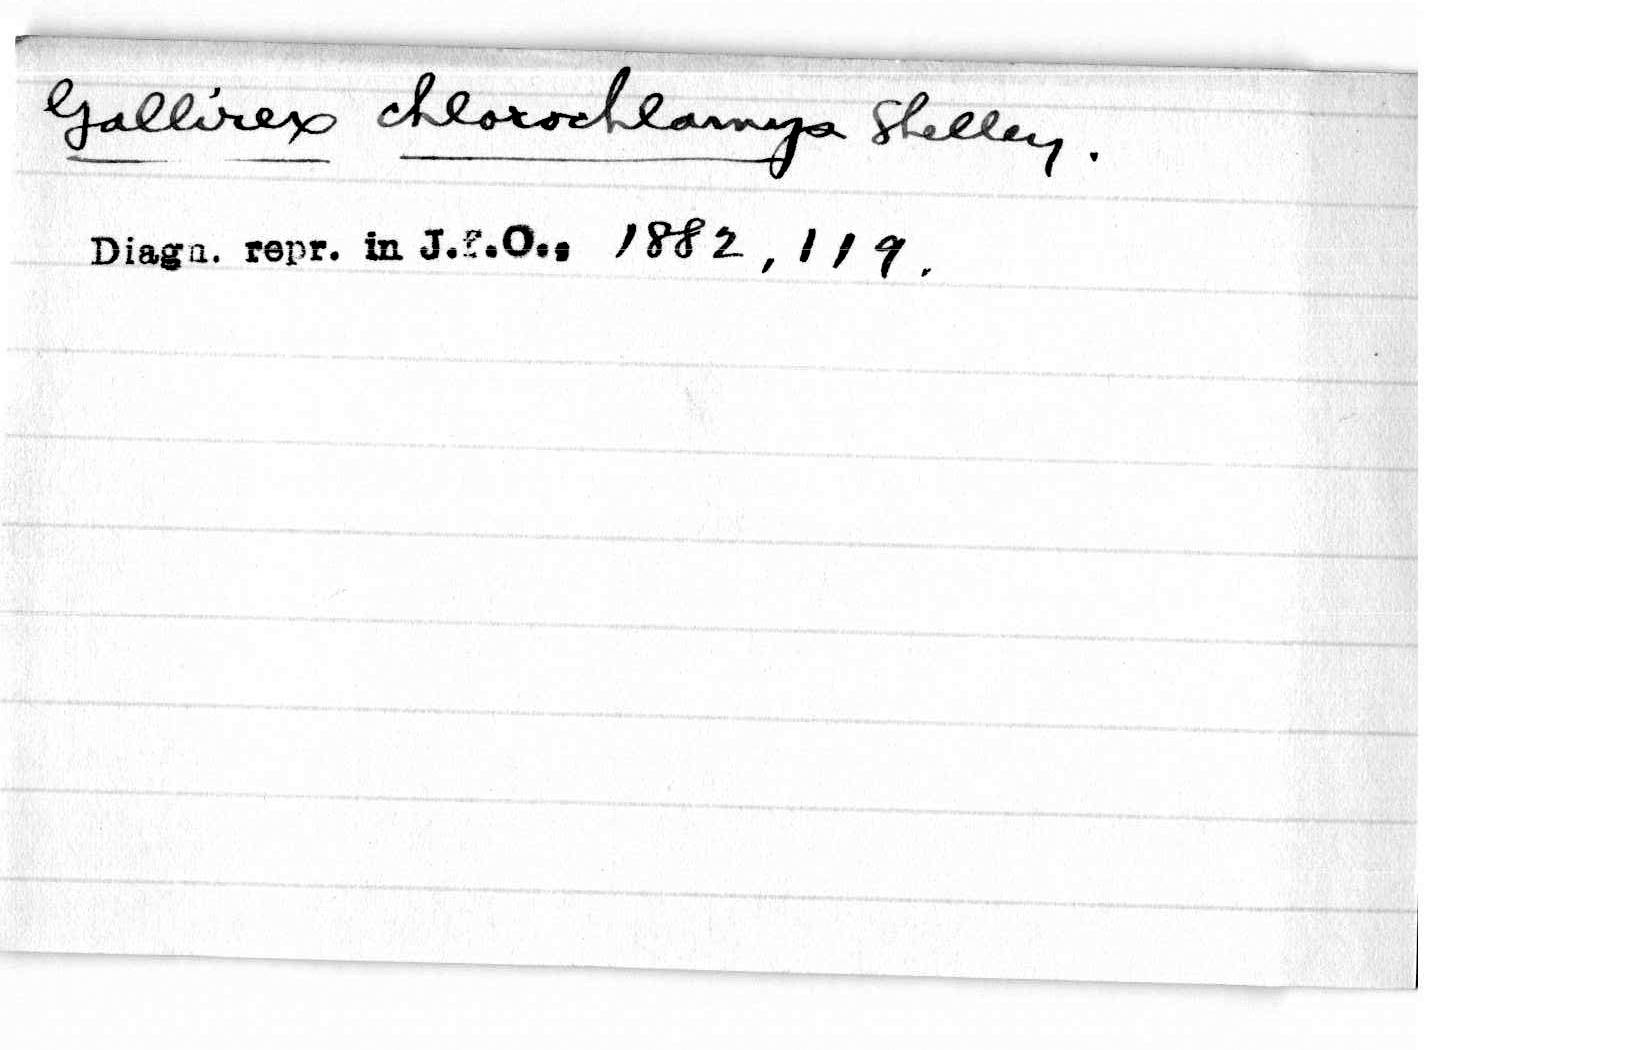 Gallirex chlorochlamys Shelley.
Diagn. repr. in J.f.O., 1882, 119.